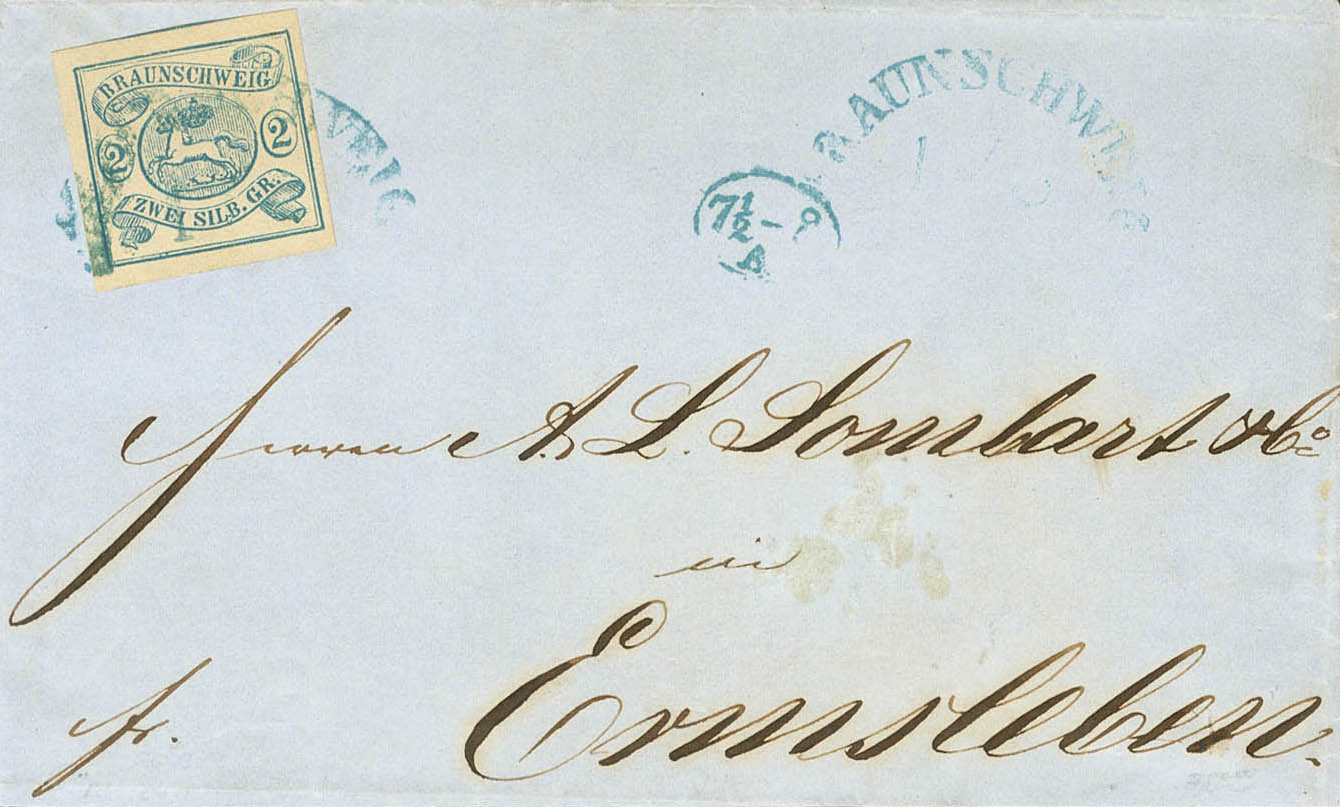 BRAUNSCHWEIG
2 2
ZWEI SILB. GR.
RAUNSCHWEIG
7½-
Herren A. L. Sombart & Co
in
Ermsleben.
fr.